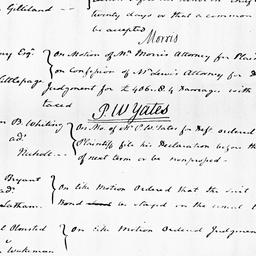 Gilliland
twenty days or that a common
be accepted
Morris
Esqr. On Motion of Mr. Morris Attorney for
Littlepage on Confession of Mr. Lewis Attorney for
Judgment for £ 406.8.4 Damages with
taxed
P. W Yates
B. Whiting On Mo. of Mr. P. W. Yates for Deft. ordered
ad. Plaintiff file his Declaration before the
of next term or be nonprossed
Bryant On like Motion Ordered that the
ad. Bond be stayed on the usual
Latham
Olmsted On like Motion Ordered Judgment
Wakeman